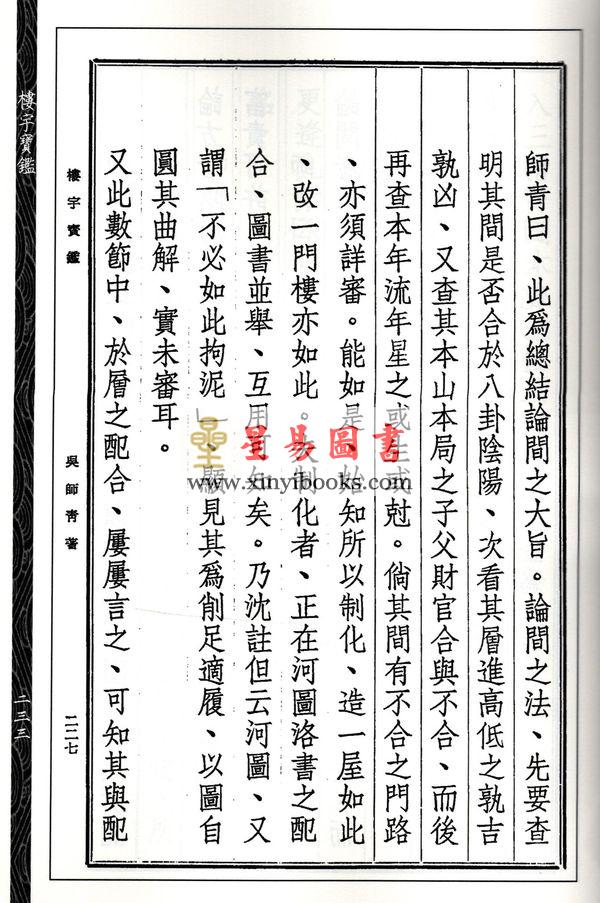 師青曰、此爲總結論間之大旨。論間之法、先要查
明其間是否合於八卦陰陽、次看其層進高低之孰吉
孰凶、又查其本山本局之子父財官合與不合、而後
再查本年流年星之或生或尅。倘其間有不合之門路
、亦須詳審。能如是、始知所以制化、造一屋如此
、改一門樓亦如此。夫制化者、正在河圖洛書之配
合、圖書並舉、互用可知矣。乃沈註但云河圖、又
謂「不必如此拘泥」、顯見其爲削足適履、以圖自
圓其曲解、實未審耳。
又此數節中、於層之配合、屢屢言之、可知其與配
樓宇寶鑑
吳師青著
二二七
樓宇寶鑑
二三三
星易圖書
www.xinyibooks.com